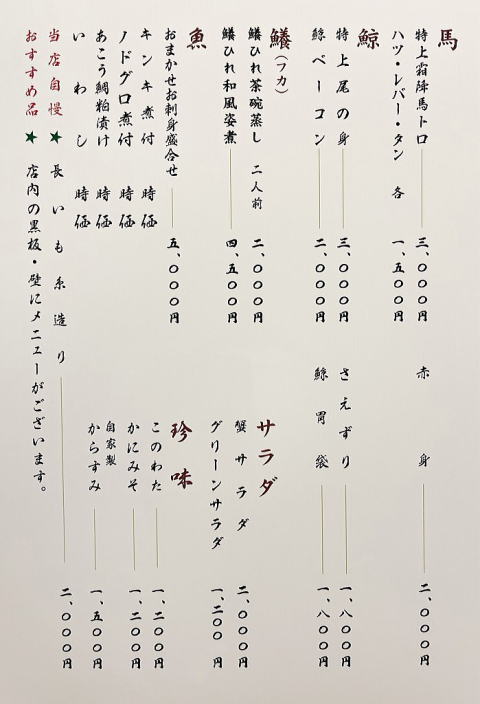 馬
特上霜降馬トロ 三、〇〇〇円
赤身 二、〇〇〇円
ハツ・レバー・タン 各 一、五〇〇円
鯨
特上尾の身 三、〇〇〇円
さえずり 一、八〇〇円
鯨ベーコン 二、〇〇〇円
鯨胃袋 一、八〇〇円
鱶(フカ)
鱶ひれ茶碗蒸し 二人前 二、〇〇〇円
鱶ひれ和風姿煮 四、五〇〇円
サラダ
蟹サラダ 二、〇〇〇円
グリーンサラダ 一、二〇〇円
魚
おまかせお刺身盛合せ 五、〇〇〇円
キンキ煮付 時価
ノドグロ煮付 時価
あこう鯛粕漬け 時価
いわし 時価
珍味
このわた 一、二〇〇円
かにみそ 一、二〇〇円
自家製からすみ 一、五〇〇円
当店自慢★長いも糸造り 二、〇〇〇円
おすすめ品★店内の黒板・壁にメニューがございます。